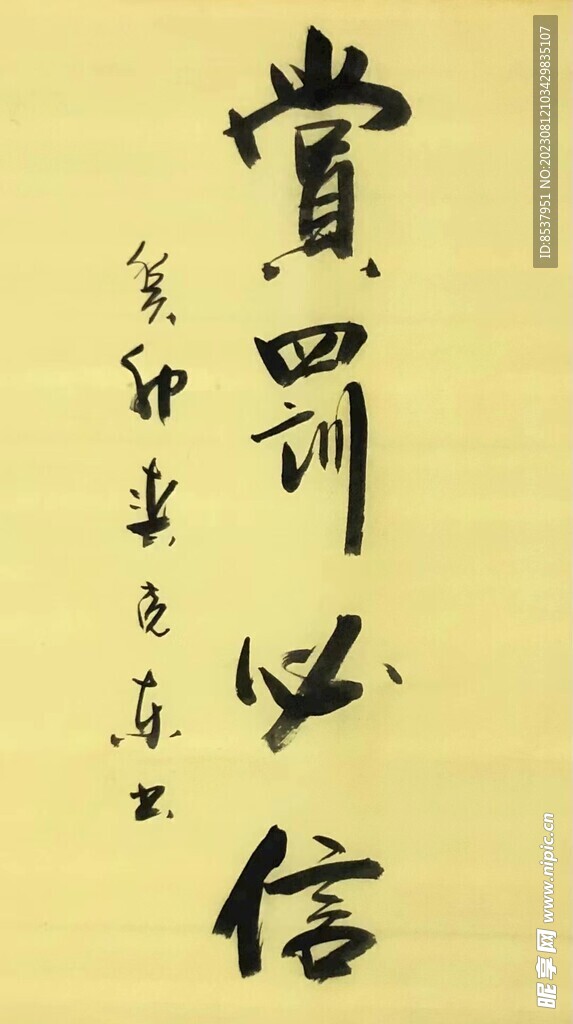 賞罰必信
癸卯克东书
ID:8537951 NO:20230812103429835107
昵享网 www.nipic.cn